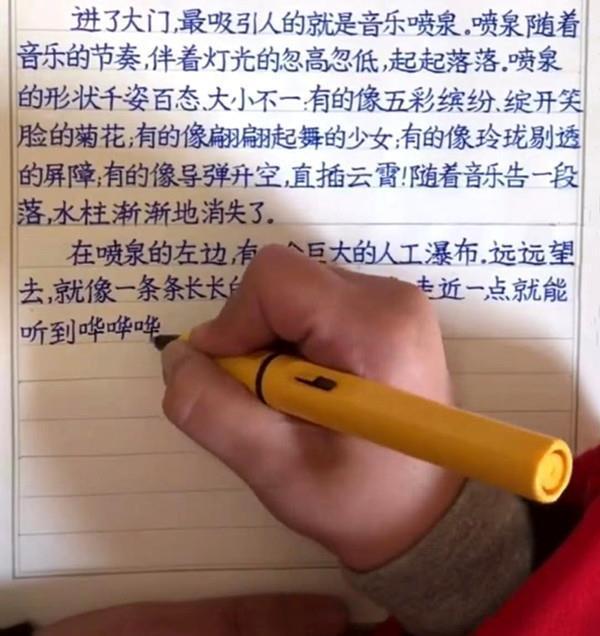 进了大门,最吸引人的就是音乐喷泉。喷泉随着
音乐的节奏,伴着灯光的忽高忽低,起起落落。喷泉
的形状千姿百态、大小不一:有的像五彩缤纷、绽开笑
脸的菊花;有的像翩翩起舞的少女;有的像玲珑剔透
的屏障;有的像导弹升空,直插云霄!随着音乐告一段
落,水柱渐渐地消失了。
在喷泉的左边,有 个巨大的人工瀑布。远远望
去,就像一条条长长的 走近一点就能
听到哗哗哗